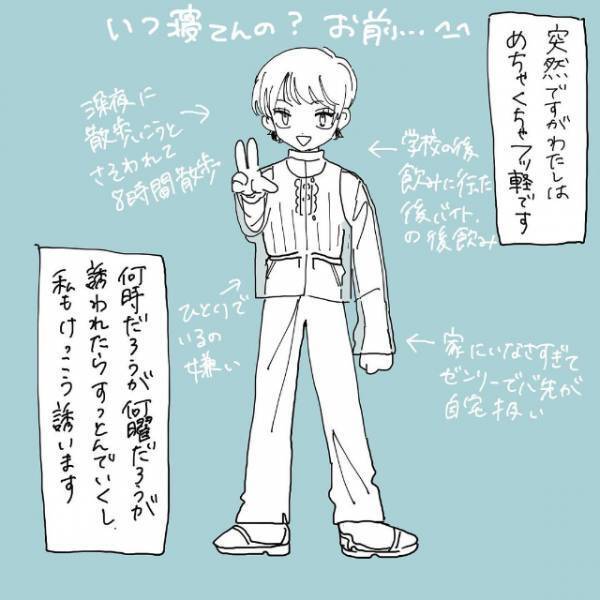 いつ寝てんの？ お前…^^
突然ですがわたしは
めちゃくちゃフッ軽です
深夜に
散歩いこうと
さそわれて
8時間散歩
学校の後
飲みに行た
後バイト、
の後飲み
ひとりで
いるの
嫌い
家にいなさすぎて
ゼンリーでバ先が
自宅扱い
何時だろうが何曜だろうが
誘われたらすっとんでいくし、
私もけっこう誘います